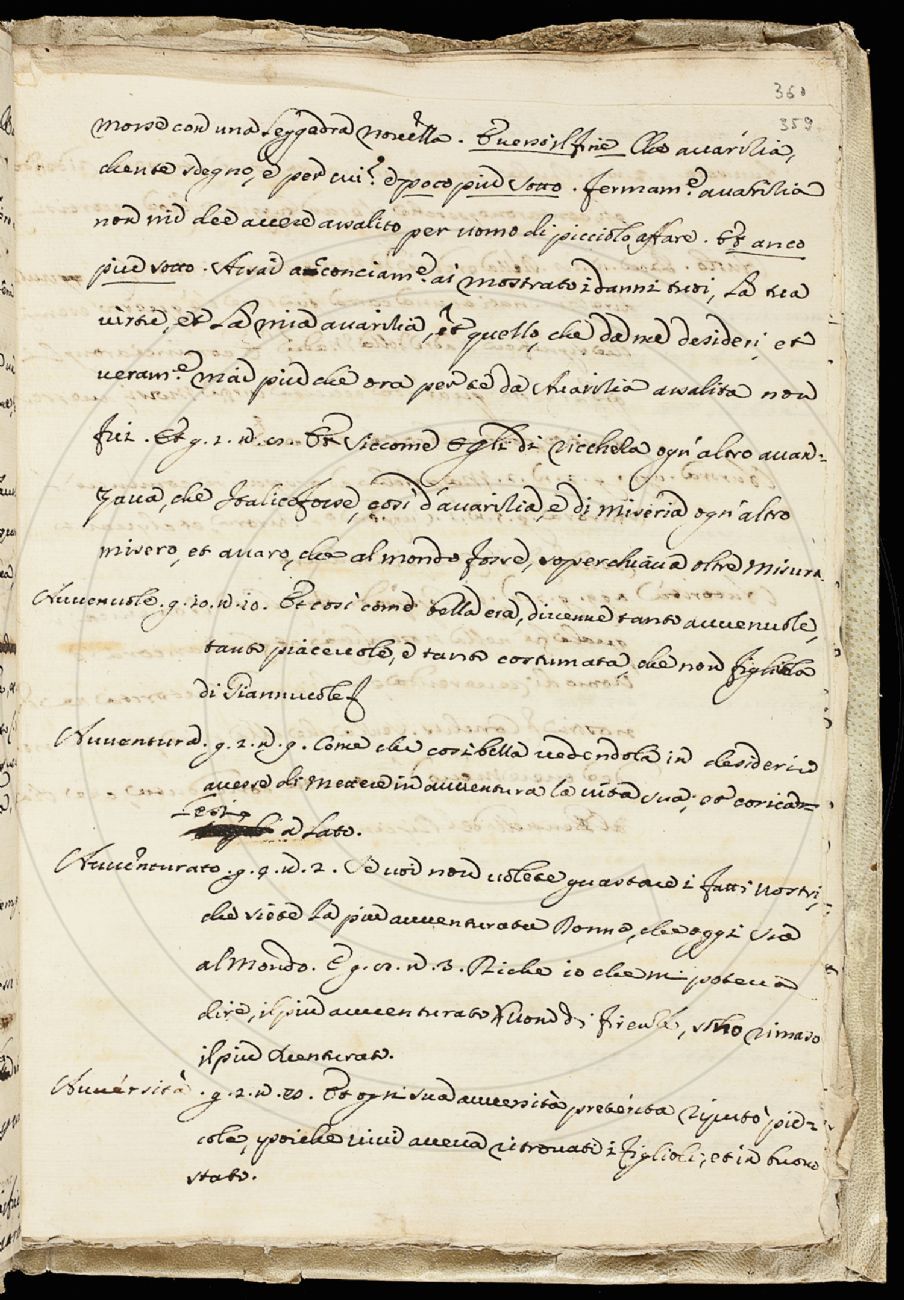 360
359
morse con una leggedra novella. Et verso il fine Che avarizia,
che ente sdegno, e per cui? e poco più sotto. Fermam.e avarizia
non mi dee avere assalito per uomo di picciolo affare. Et anco
più sotto. Assai acconciam.e ai mostrato i danni tuoi, la tua
virtù, et la mia avarizia, et quello, che da me desideri, et
veram.e mai più che ora per te da Avarizia assalita non
fui. Et g. 1. n.
Et siccome egli di ricchezza ogn' altro avan=
zava, che Italico fosse, così d'avarizia, e di miseria ogn' altro
misero, et avaro, che al mondo fosse, soperchiava oltre misura.
Avvenvole. g. 10. n. 10. Et così come bella era, divenne tanto avvenvole,
tanto piacevole, e tanto costumata che non figliola
di Giannucole
Avventura. g. 2. n. 9. Come che così bella vedendola in desiderio
avesse di mettere in avventura la vita sua, et coricar=
lesi a lato.
Avventurato. g. 9. n. 2. Se voi non volete guastare i fatti nostri,
che siete la più avventurata Donna, che oggi sia
al Mondo. E g.
n. 3.
io che mi poteva
dire, il più avventurato huom di Firenze, sono rimaso
il più sventurato.
Avversità. g. 2. n.
Et ogni sua avversità preterita riputò pic=
cola, poiche vivi aveva ritrovati i figlioli, et in buono
stato.